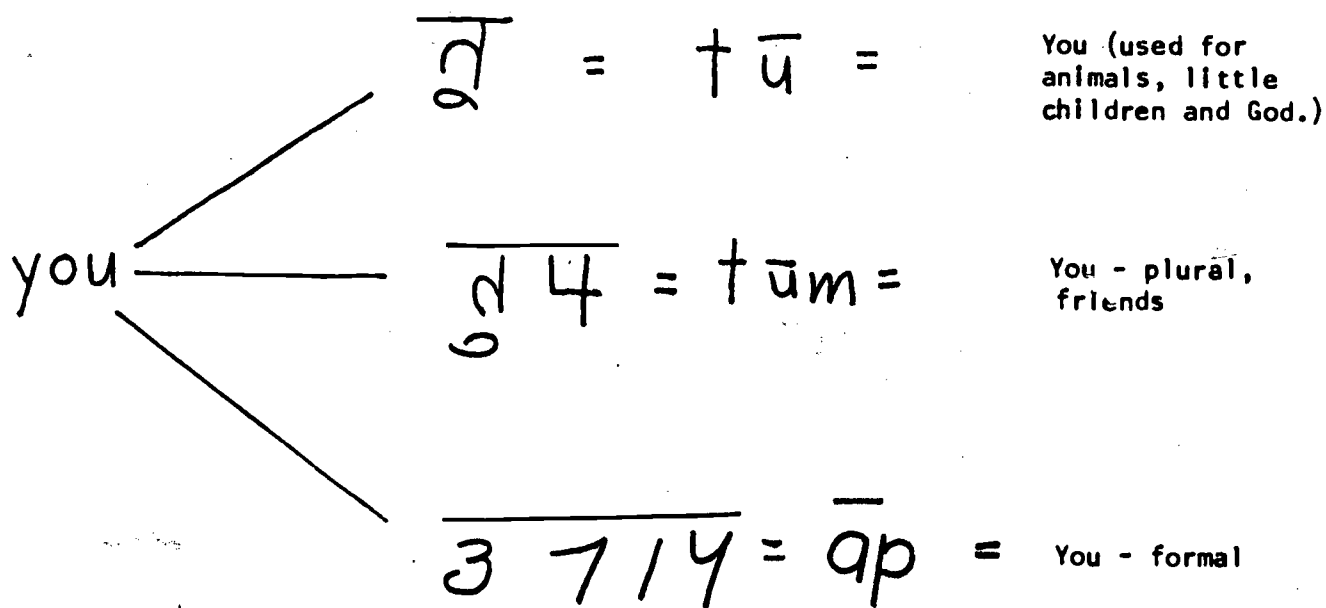 तू = tū = You (used for
animals, little
children and God.)
you
तुम = tūm = You - plural,
friends
आप = āp = You - formal